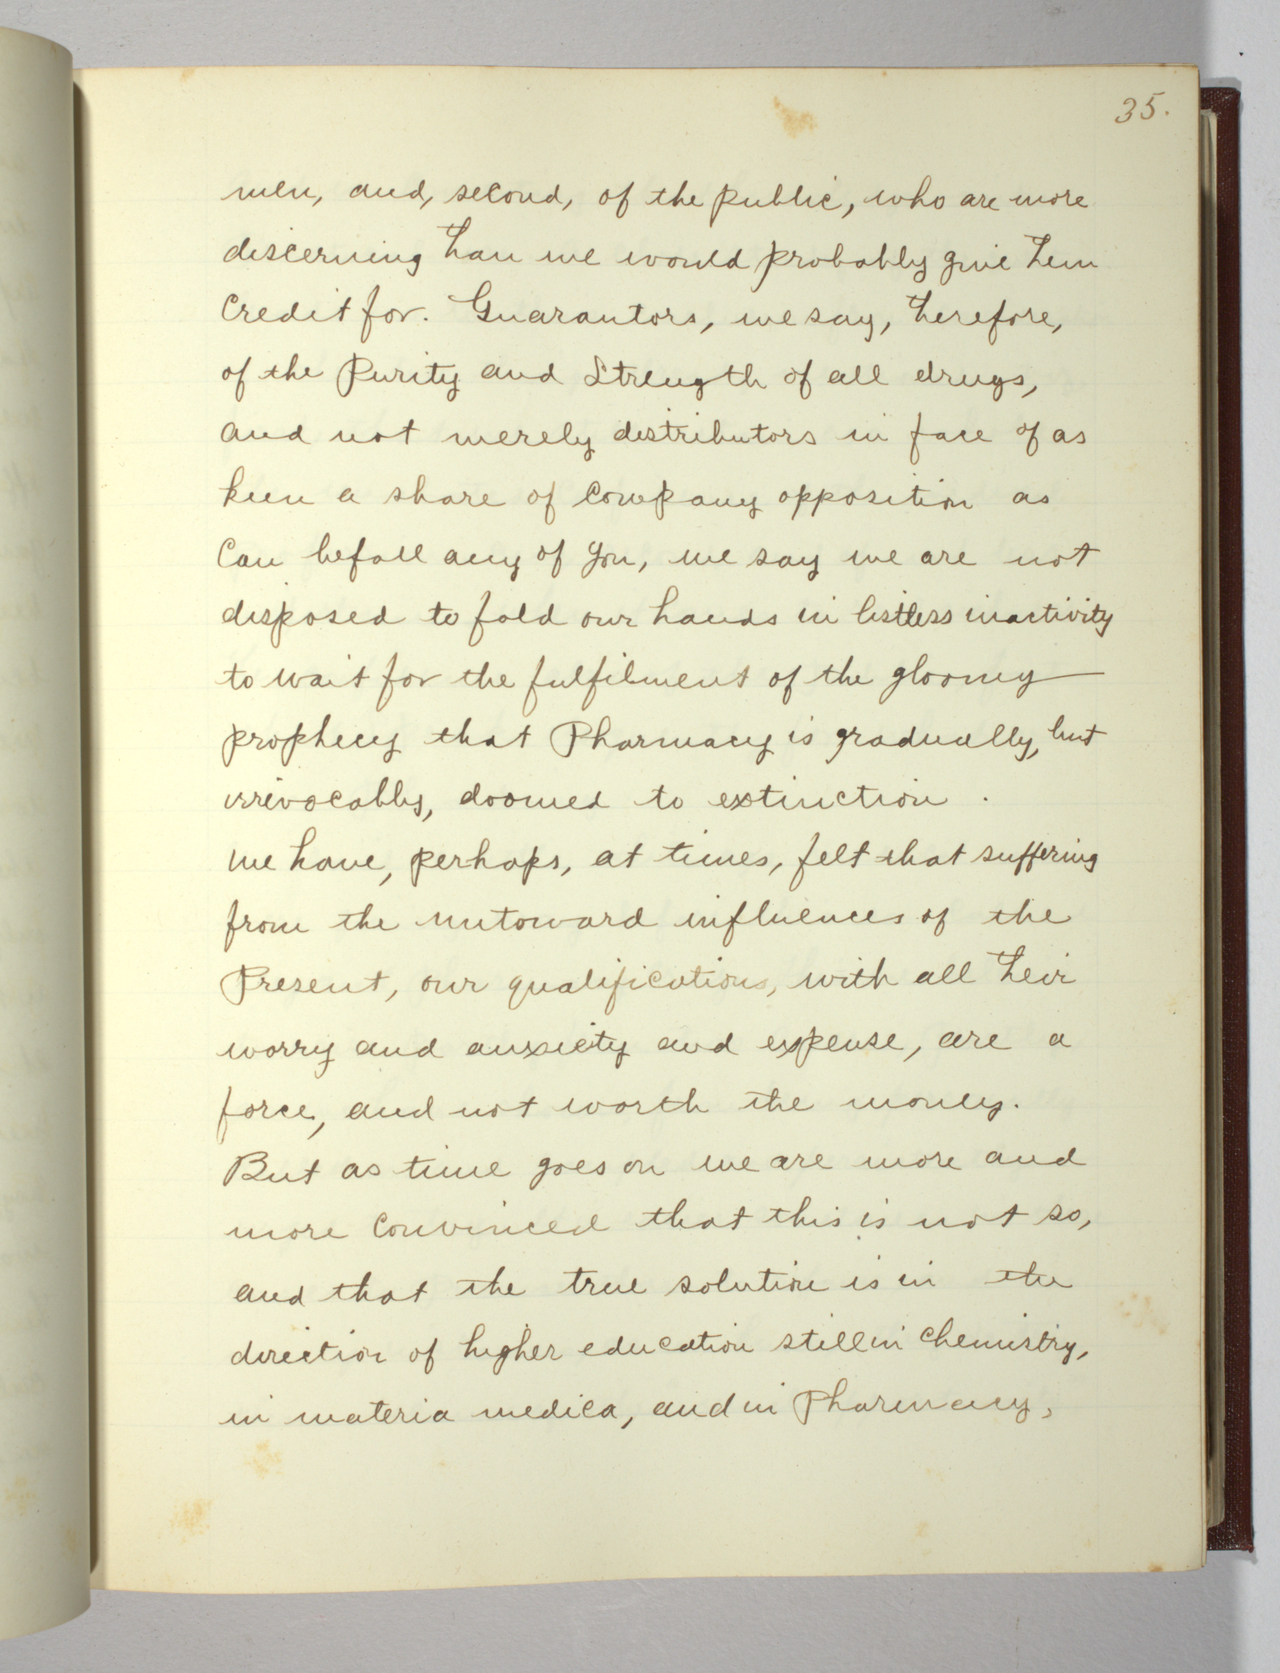 35.
men, and, second, of the public, who are more
discerning than we would probably give them
credit for. Guarantors, we say, therefore,
of the Purity and Strength of all drugs,
and not merely distributors in face of as
keen a share of company opposition as
can befall any of you, we say we are not
disposed to fold our hands in listless inactivity
to wait for the fulfilment of the gloomy
prophecy that Pharmacy is gradually, but
irrevocably, doomed to extinction.
We have, perhaps, at times, felt that suffering
from the untoward influences of the
Present, our qualifications, with all their
worry and anxiety and expense, are a
force, and not worth the money.
But as time goes on we are more and
more convinced that this is not so,
and that the true solution is in the
direction of higher education still in Chemistry,
in materia medica, and in Pharmacy,